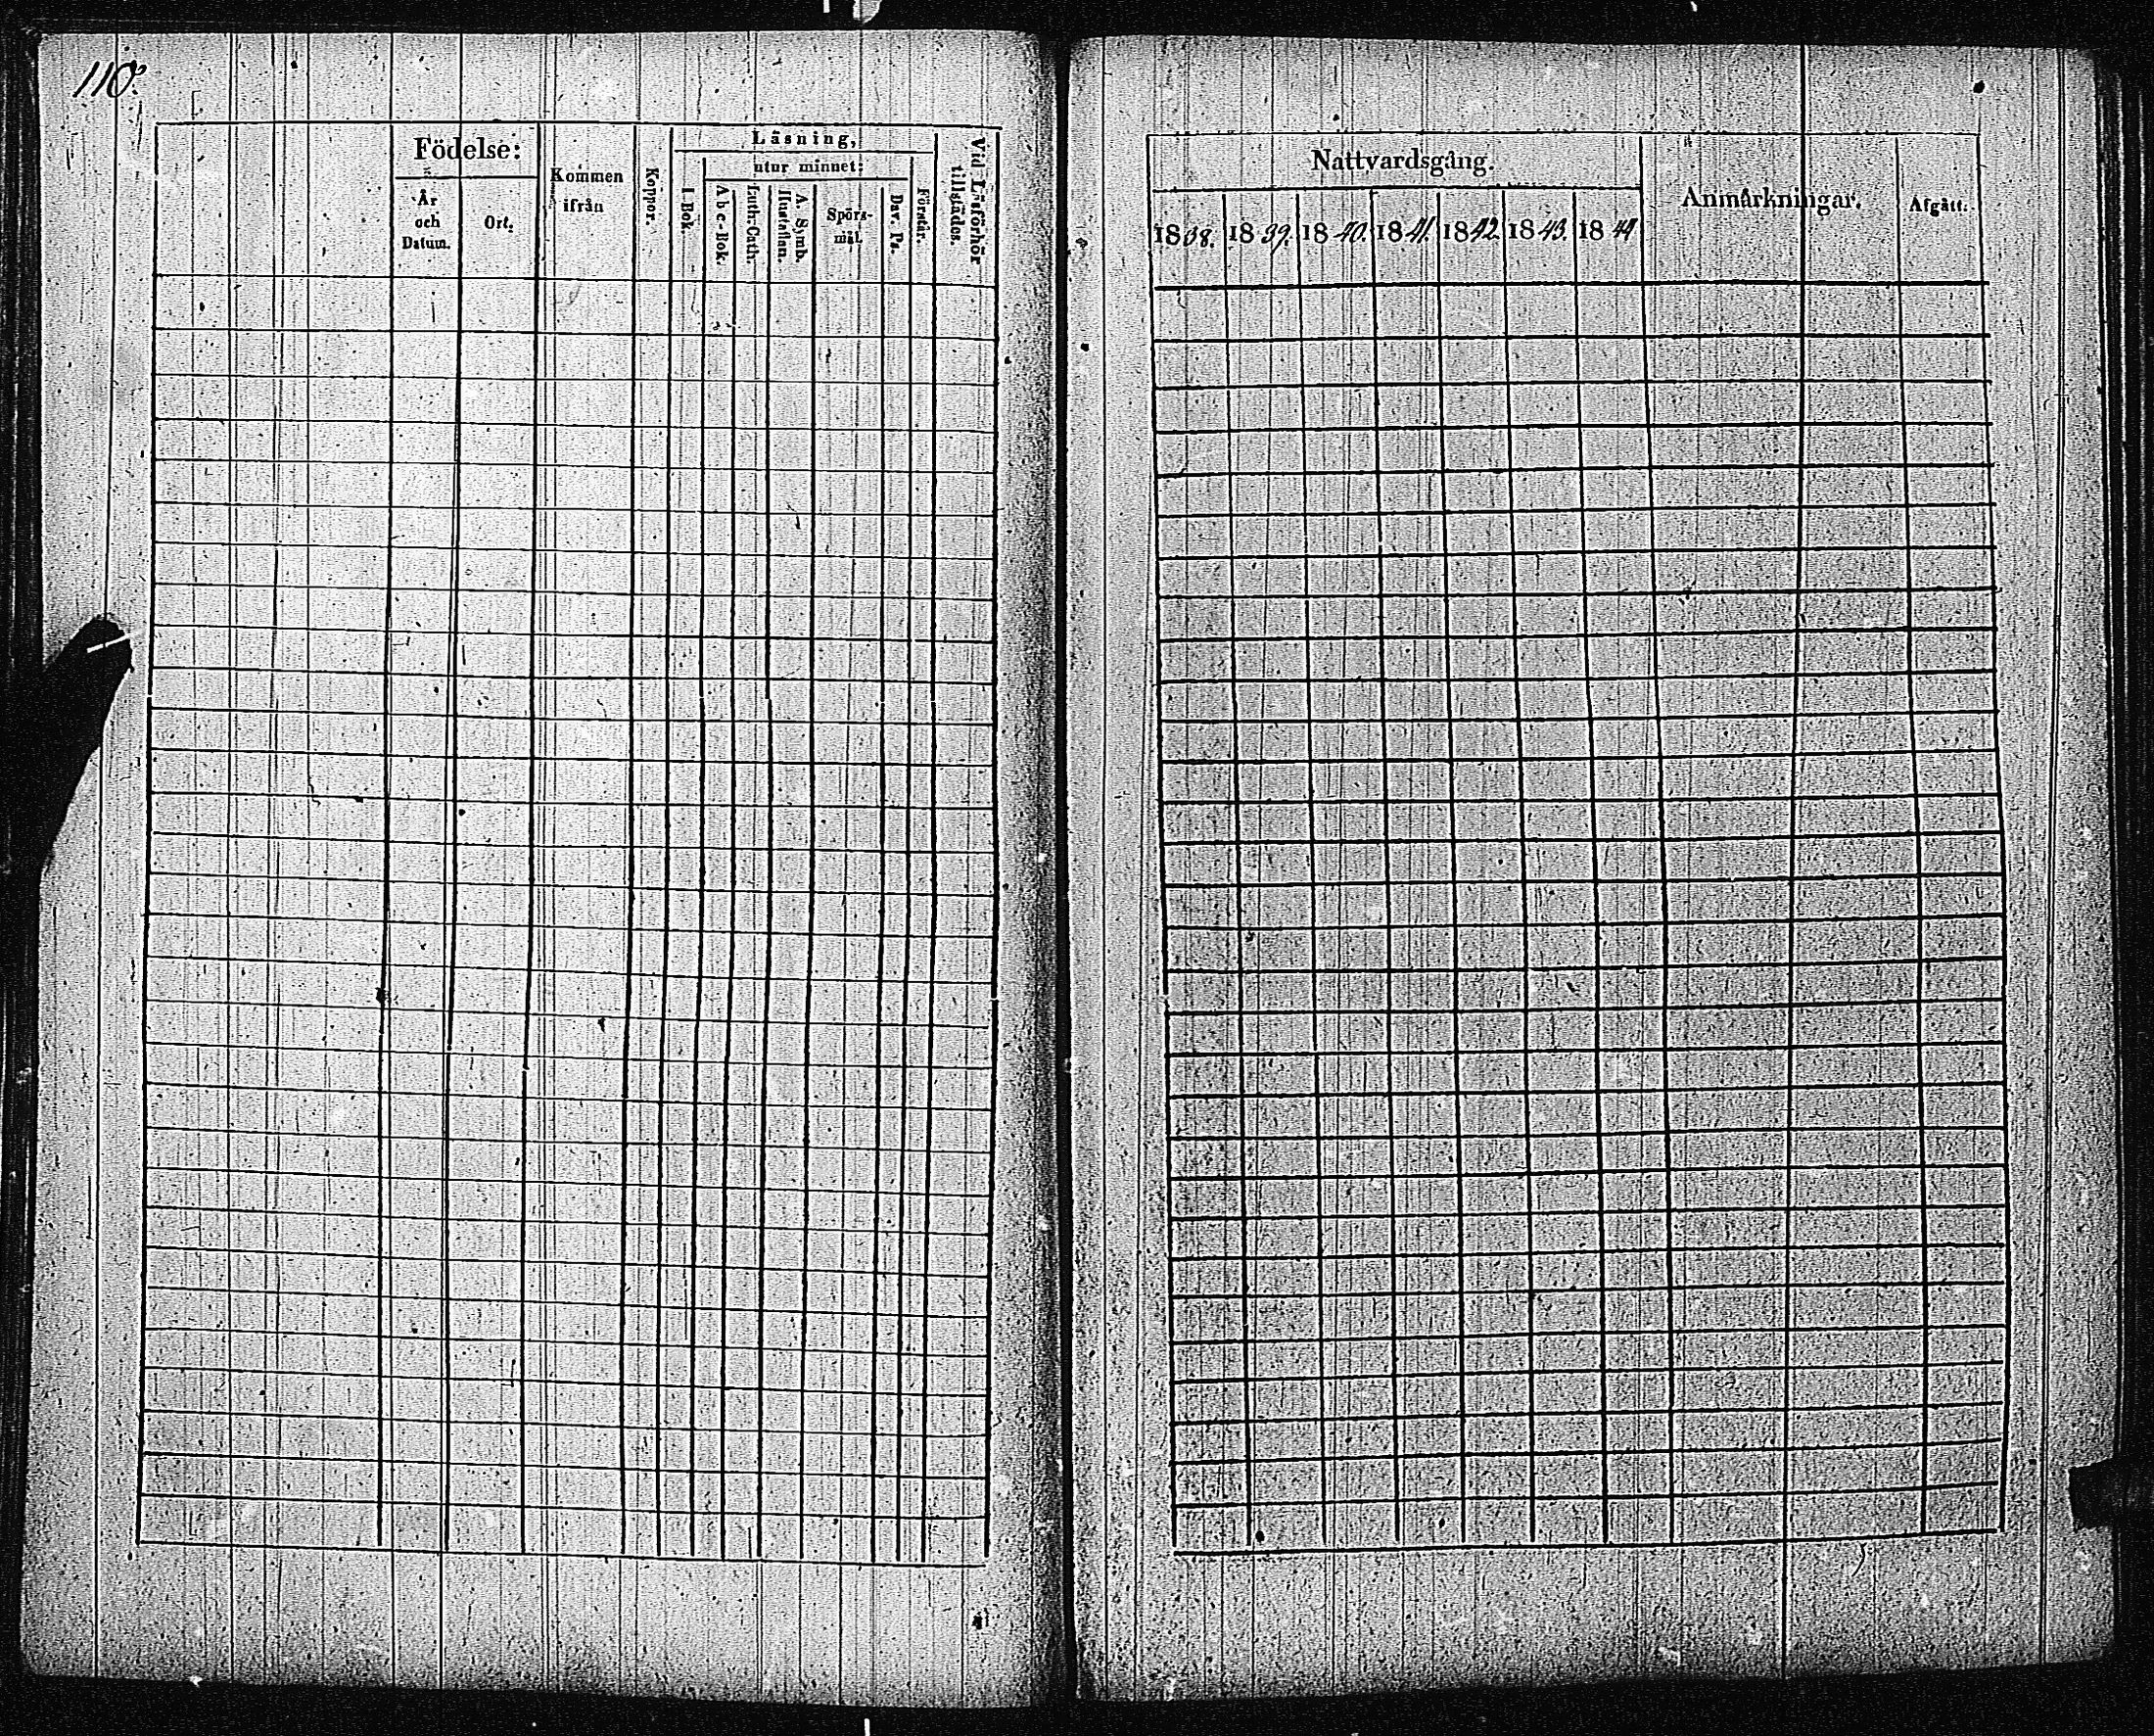 110.
Födelse:
År
och
Datum.
Ort.
Kommen
ifrån
Koppor.
Läsning,
I Bok.
utur minnet:
Abc-Bok.
Luth: Cath:
A. Symb.
Hustaflan.
Spörs-
mål.
Dav. Ps.
Förstår.
Vid Läsförhör
tillstädes.
Nattvardsgång.
1838. 1839. 1840. 1841. 1842. 1843. 1844
Anmärkningar.
Afgått.